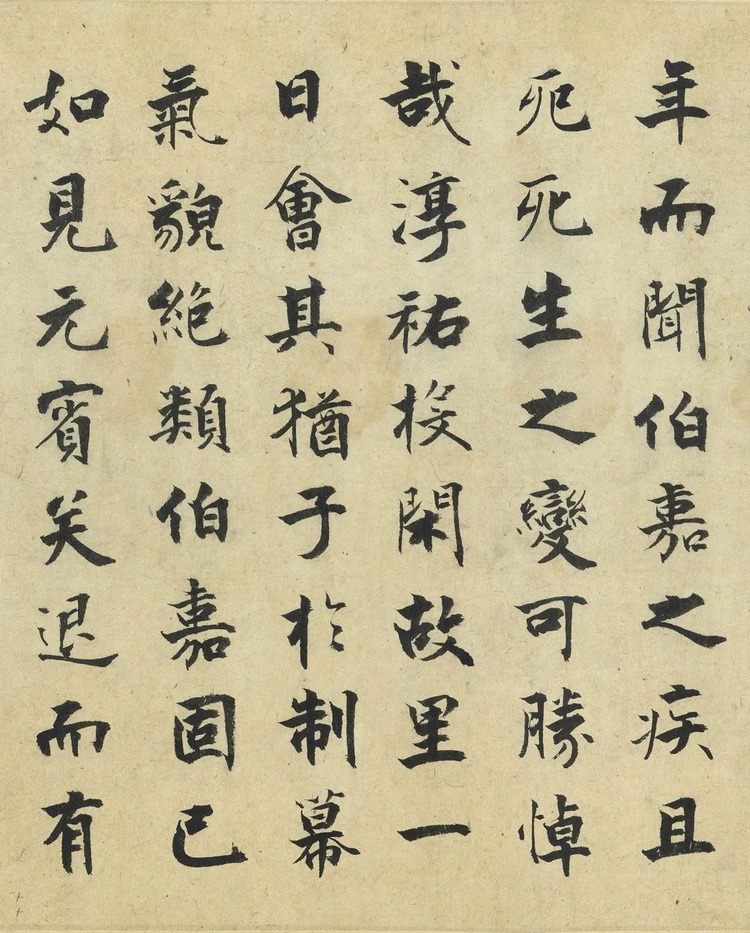 年而聞伯嘉之疾且
死死生之變可勝悼
哉淳祐投閑故里一
日會其猶子於制幕
氣貌絕類伯嘉固已
如見元賓矣退而有